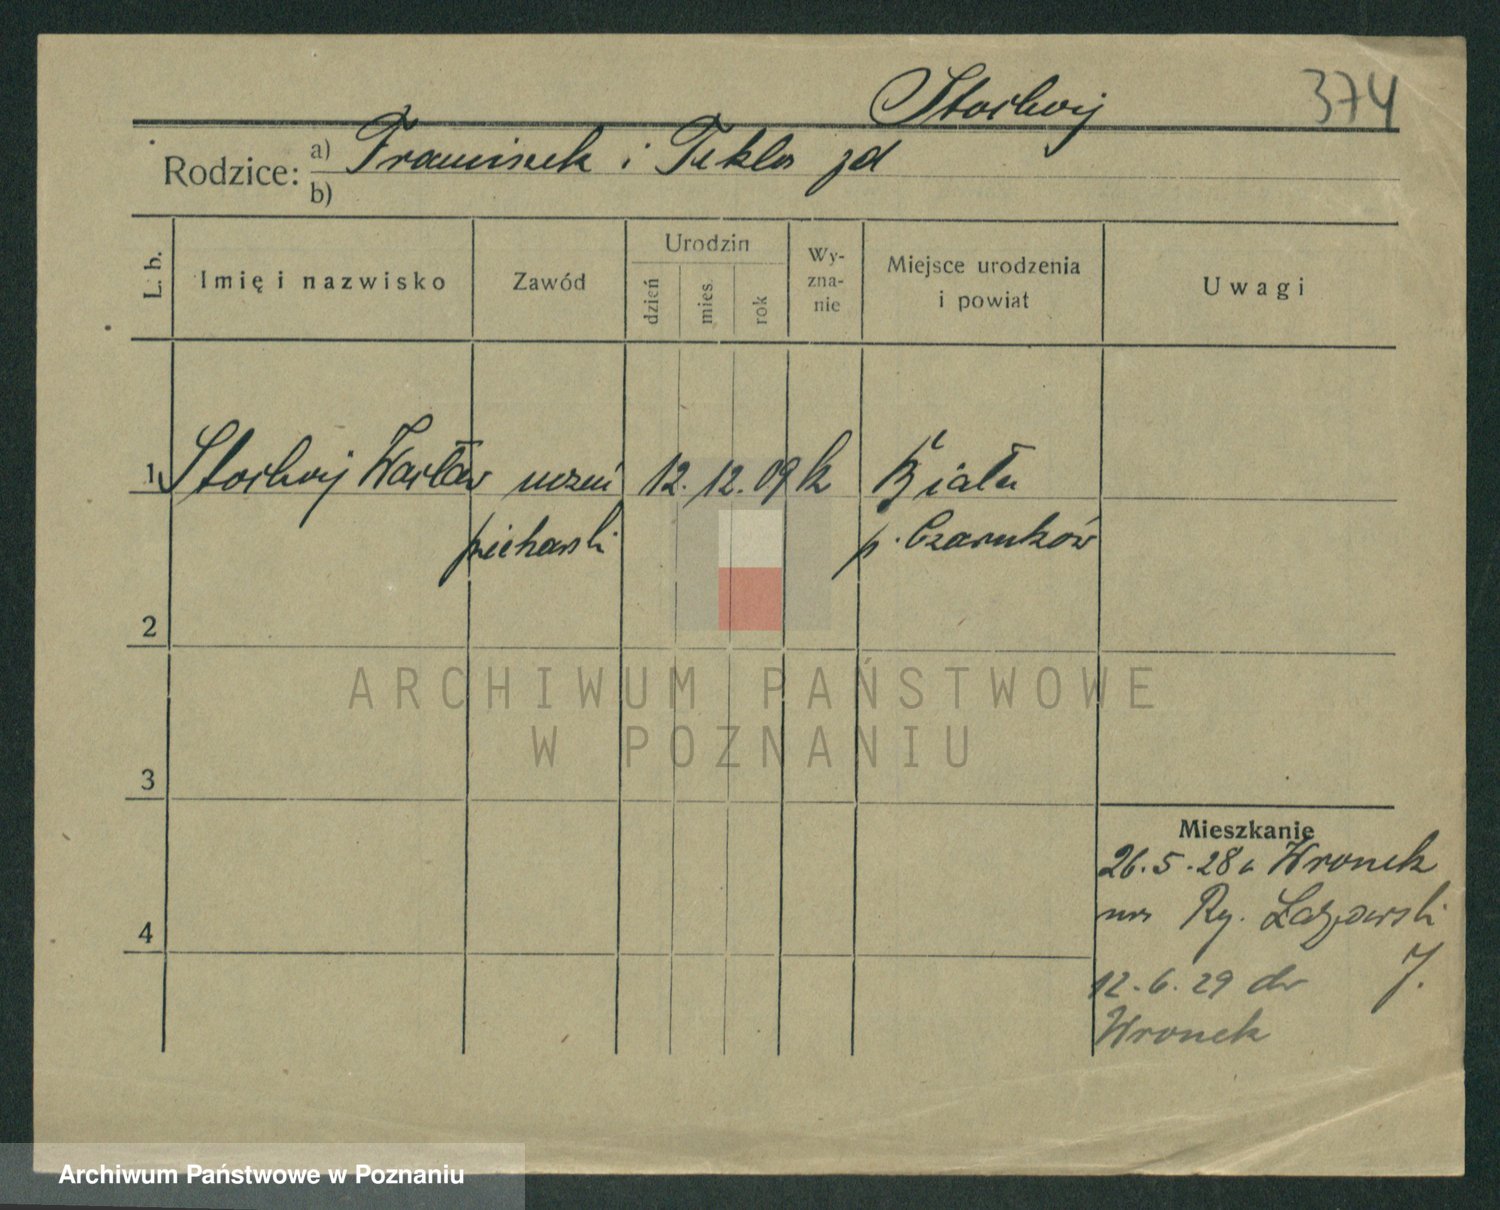 Stochwij
374
Rodzice: a) Franciszek i Tekla zd
b)
L. b.
Imię i nazwisko
Zawód
Urodzin
dzień
mies.
rok
Wy-
zna-
nie
Miejsce urodzenia
i powiat
Uwagi
1 Stochwij Wacław uczeń 12. 12. 09 k Biała
piekarski p. Czarnków
2
3
4
Mieszkanie
26.5.28 z Wronek
Ry.
12.6.29 do
Wronek
ARCHIWUM PAŃSTWOWE
W POZNANIU
Archiwum Państwowe w Poznaniu